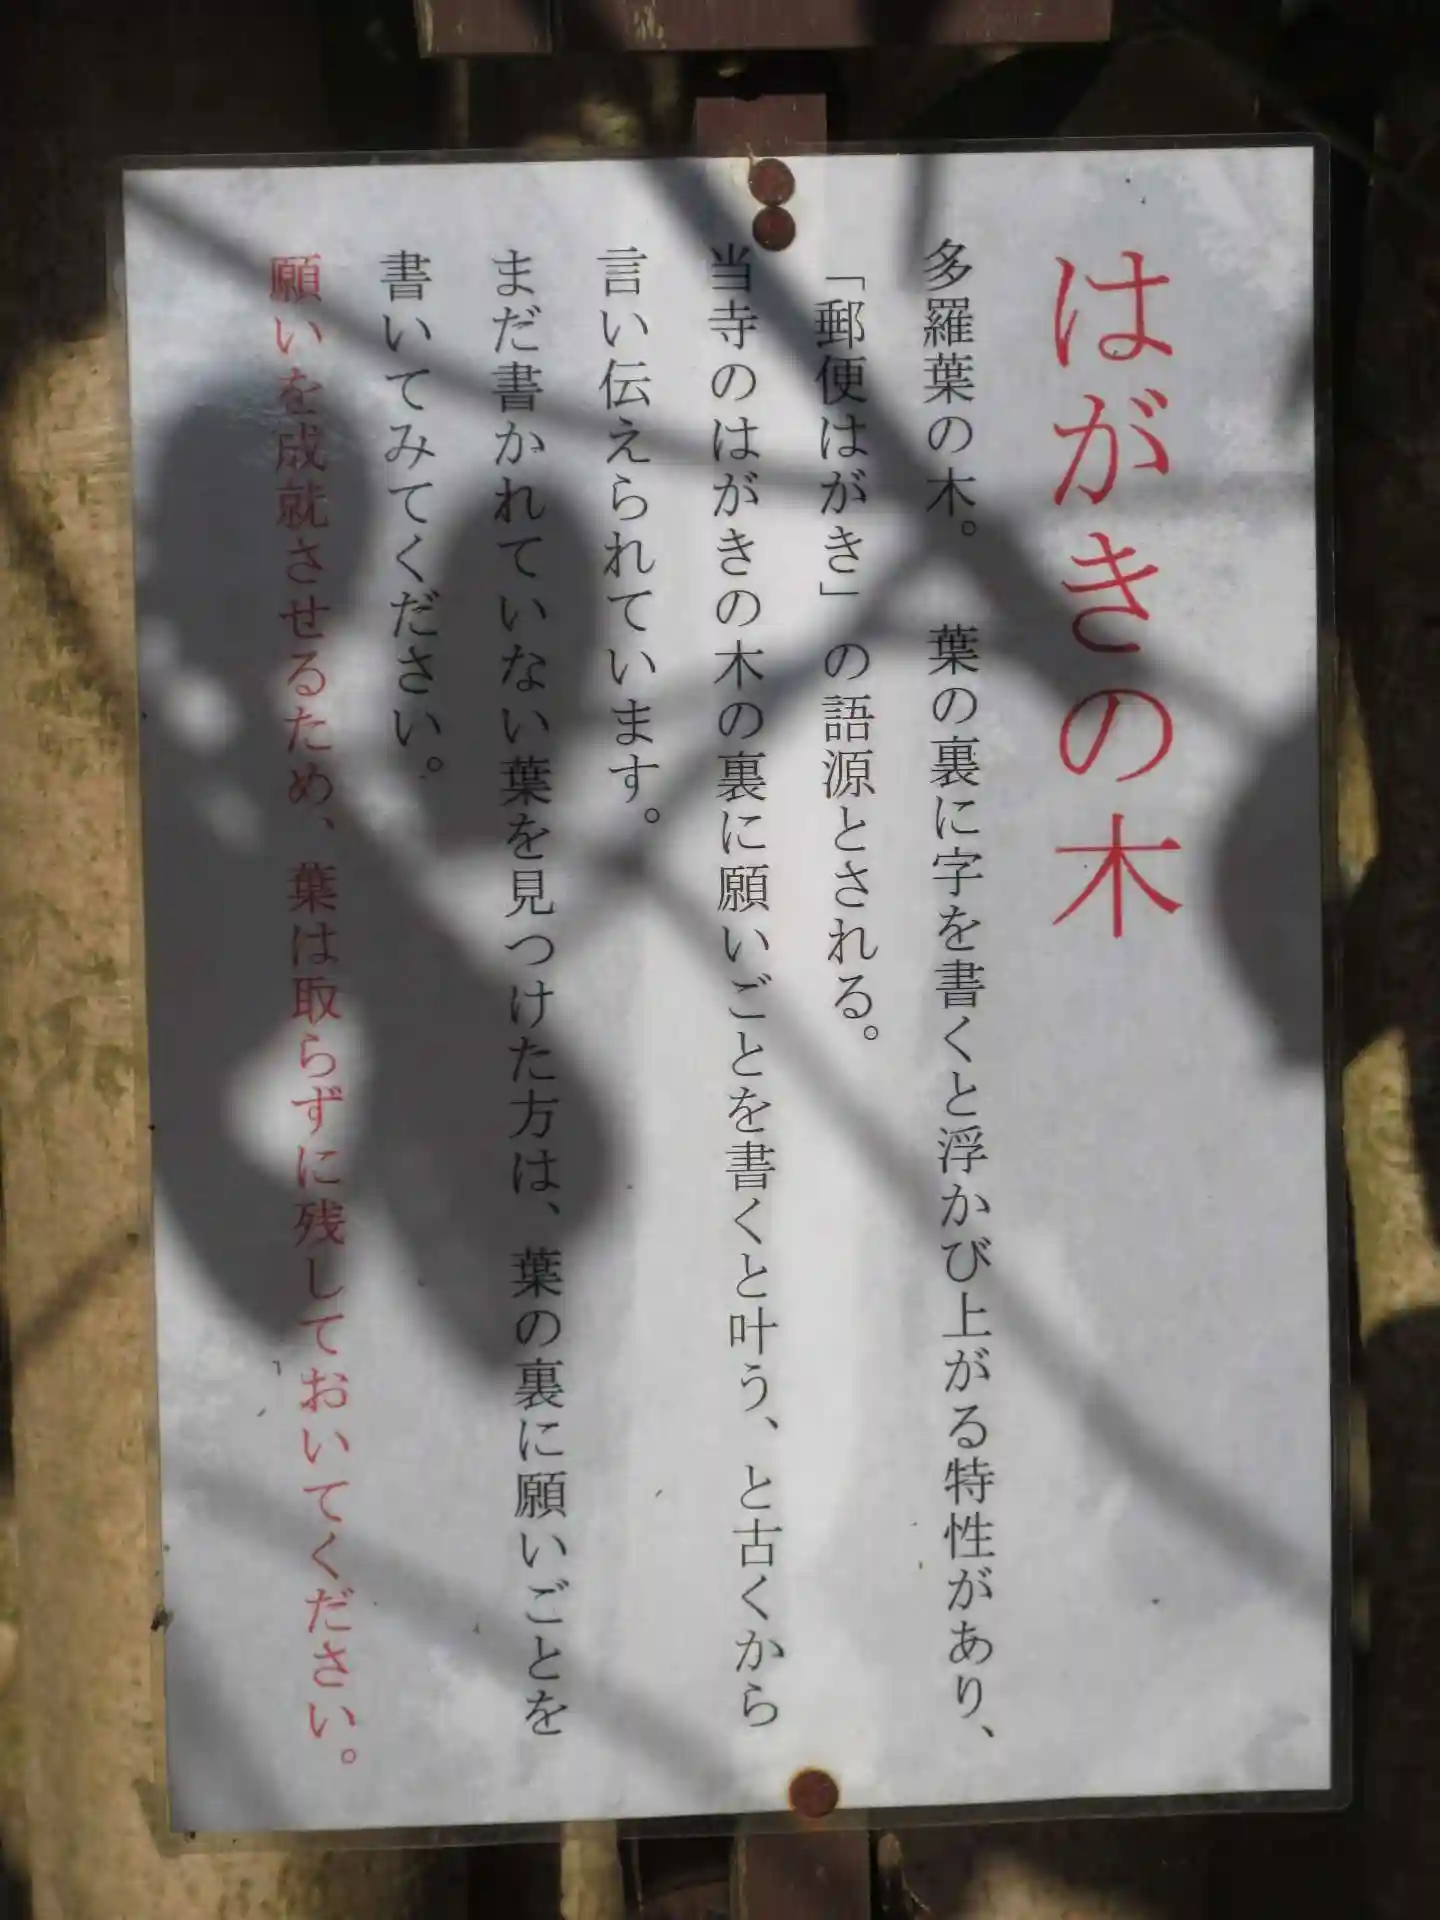 はがきの木
多羅葉の木。　葉の裏に字を書くと浮かび上がる特性があり、
「郵便はがき」の語源とされる。
当寺のはがきの木の裏に願いごとを書くと叶う、と古くから
言い伝えられています。
まだ書かれていない葉を見つけた方は、葉の裏に願いごとを
書いてみてください。
願いを成就させるため、葉は取らずに残しておいてください。